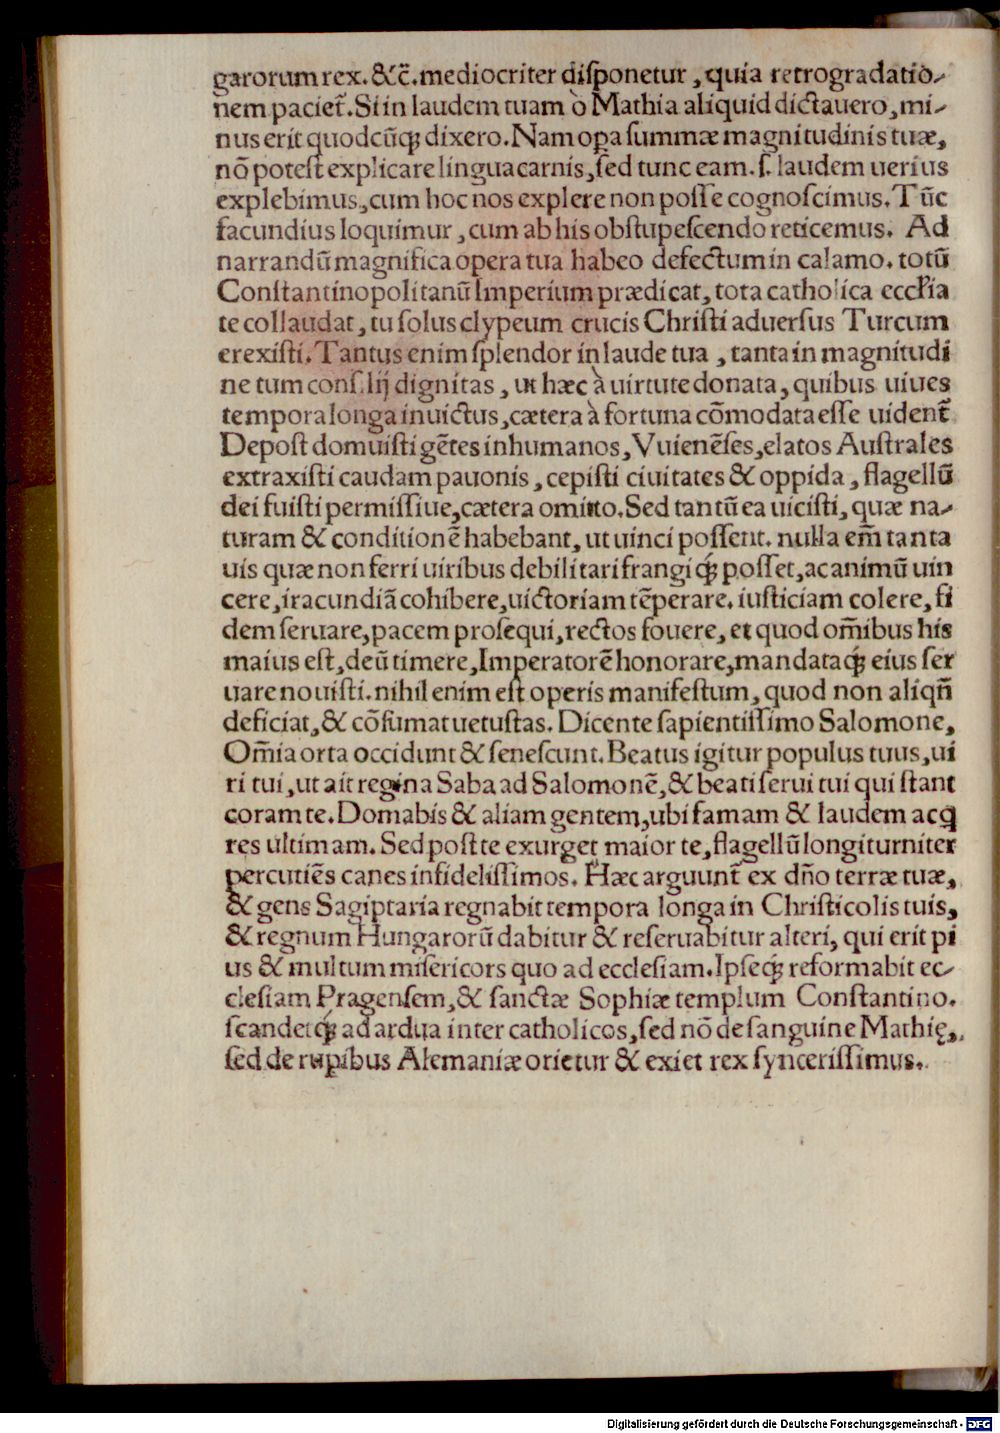 garorum rex. &c̄. mediocriter diſponetur, quia retrogradatiō-
nem paciet᷑. Si in laudem tuam ò Mathia aliquid dictauero, mi-
nus erit quodcūqꝫ dixero. Nam oꝑa ſummæ magnitudinis tuæ,
nō poteſt explicare lingua carnis, ſed tunc eam. ſ. laudem uerius
explebimus, cum hoc nos explere non poſſe cognoſcimus. Tūc
facundius loquimur, cum ab his obſtupeſcendo reticemus. Ad
narrandū magnifica opera tua habeo defectum in calamo. totū
Conſtantinopolitanū Imperium prædicat, tota catholica eccl̄ia
te collaudat, tu ſolus clypeum crucis Chriſti aduerſus Turcum
erexiſti. Tantus enim ſplendor in laude tua, tanta in magnitudi
ne tum conſilij dignitas, ut hæc à uirtute donata, quibus uiues
tempora longa inuictus, cætera à fortuna cōmodata eſſe uident᷑
Depoſt domuiſti gētes inhumanos, Vuienēſes, elatos Auſtrales
extraxiſti caudam pauonis, cepiſti ciuitates & oppida, flagellū
dei fuiſti permiſſiue, cætera omitto. Sed tantū ea uiciſti, quæ na-
turam & conditionē habebant, ut uinci poſſent. nulla em̄ tanta
uis quæ non ferri uiribus debilitari frangiqꝫ poſſet, ac animū uin
cere, iracundiā cohibere, uictoriam tēperare. iuſticiam colere, fi
dem ſeruare, pacem proſequi, rectos fouere, et quod om̄ibus his
maius eſt, deū timere, Imperatorē honorare, mandataqꝫ eius ſer
uare nouiſti. nihil enim eſt operis manifeſtum, quod non aliqn̄
deficiat, & cōſumat uetuſtas. Dicente ſapientiſſimo Salomone,
Om̄ia orta occidunt & ſeneſcunt. Beatus igitur populus tuus, ui
ri tui, ut ait regina Saba ad Salomonē, & beati ſerui tui qui ſtant
coram te. Domabis & aliam gentem, ubi famam & laudem acq̇
res ultimam. Sed poſt te exurget maior te, flagellū longiturniter
percutiēs canes infideliſſimos. Hæc arguunt᷑ ex dn̄o terræ tuæ,
& gens Sagiptaria regnabit tempora longa in Chriſticolis tuis,
& regnum Hungarorū dabitur & reſeruabitur alteri, qui erit pi
us & multum miſericors quo ad eccleſiam. Ipſeqꝫ reformabit ec-
cleſiam Pragenſem, & ſanctæ Sophiæ templum Conſtantino.
ſcandetqꝫ ad ardua inter catholicos, ſed nō de ſanguine Mathię,
ſed de rupibus Alemaniæ orietur & exiet rex ſynceriſſimus.
Digitalisierung gefördert durch die Deutsche Forschungsgemeinschaft - DFG